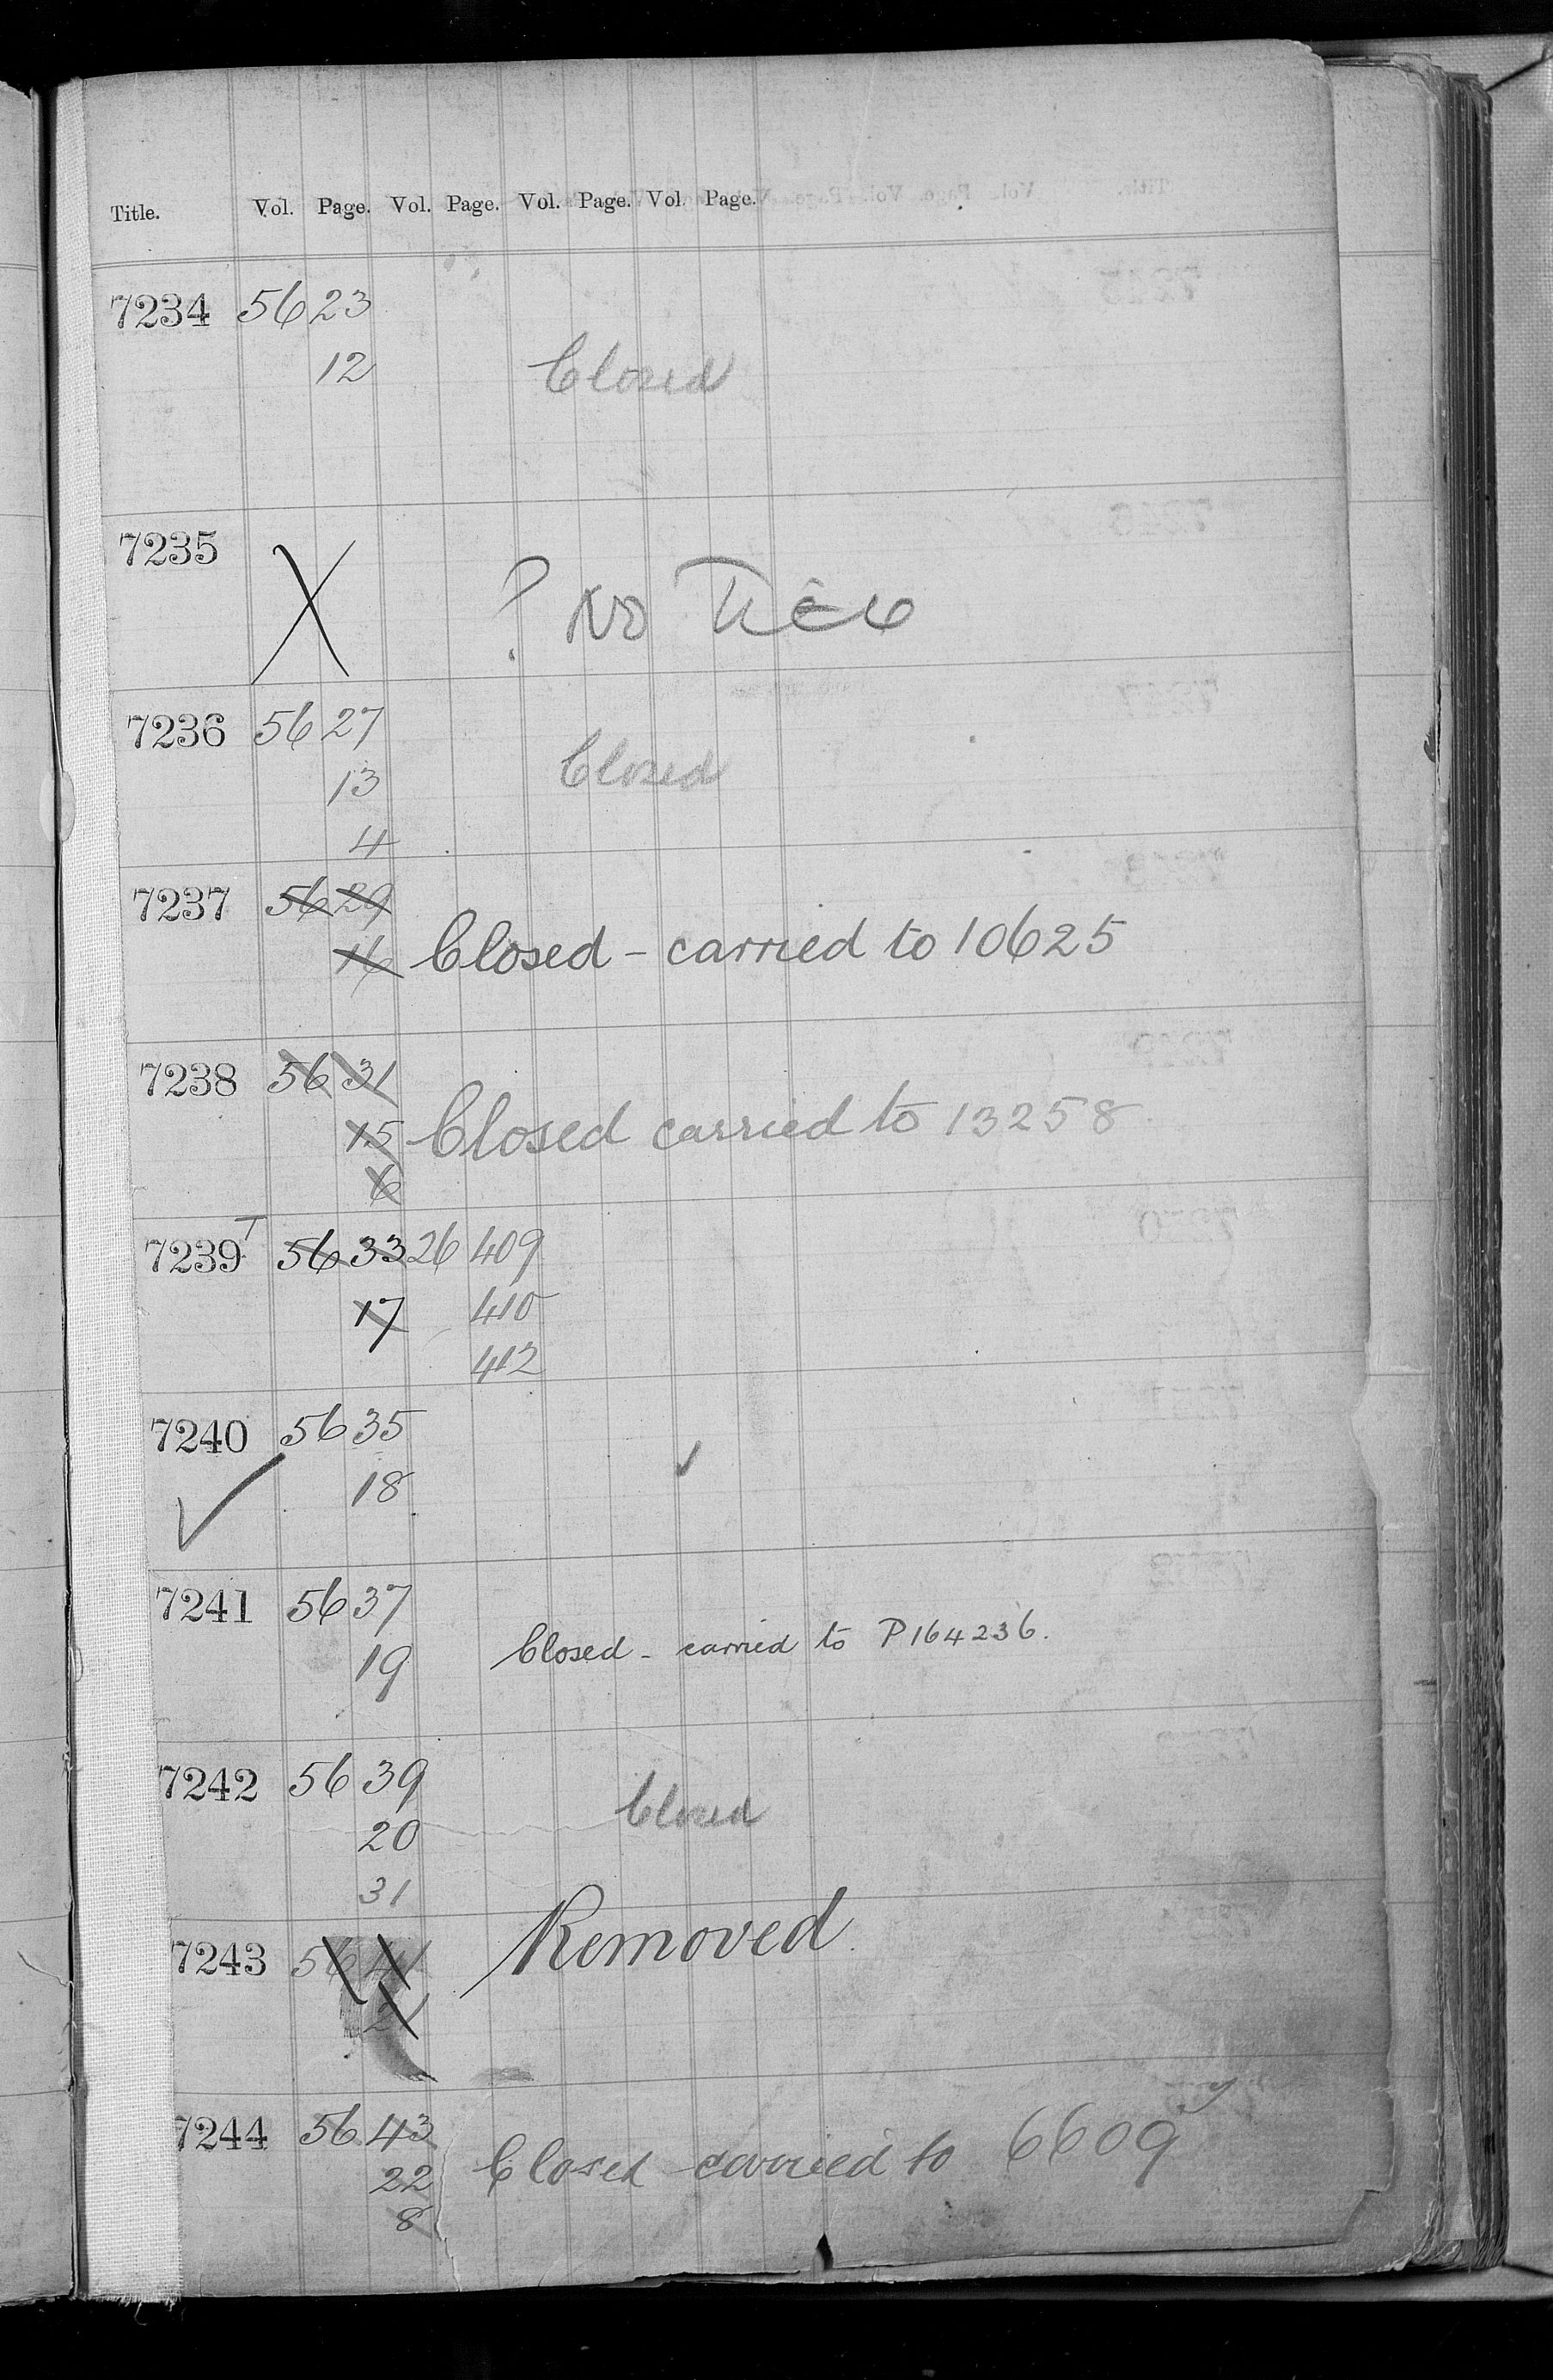 Title. Vol. Page. Vol. Page. Vol. Page. Vol. Page.
7234 56 23
12 Closed
7235 X ? No Title
7236 56 27
13 Closed
4
7237 56 29
16 Closed - carried to 10625
7238 56 31
15 Closed carried to 13258
6
7239 T 56 33 26 409
17 410
412
7240 56 35
✓ 18 ✓
7241 56 37
19 Closed - carried to P164236.
7242 56 39
20 Closed
31
7243 56 41 Removed
21
7244 56 43
22 Closed carried to 6609
8